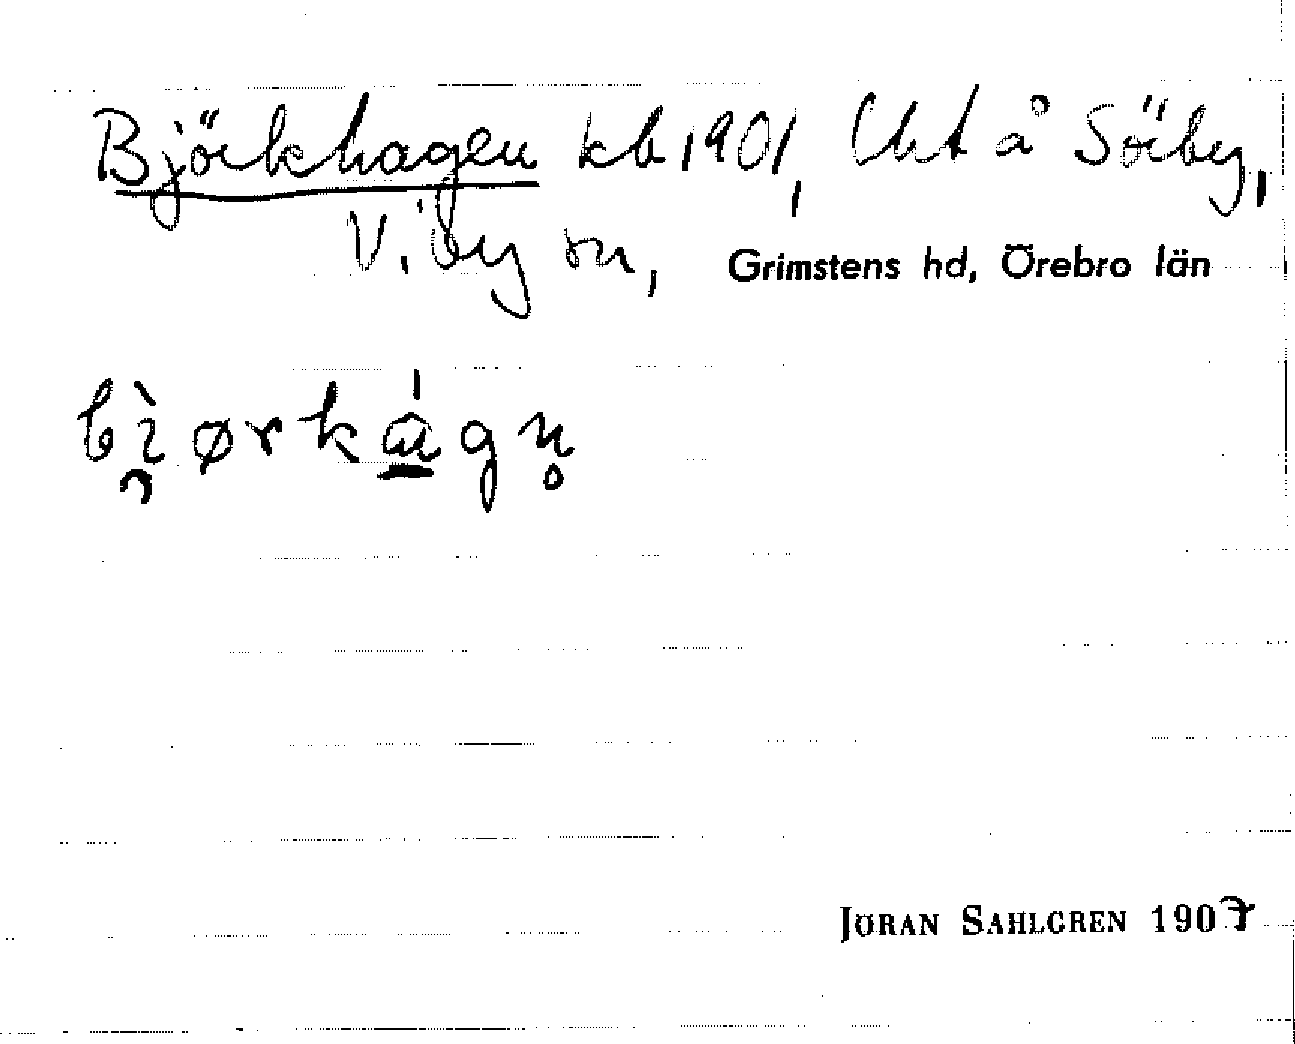 Björkhagen kb 1901, Uht å Sörby,
Viby sn, Grimstens hd, Örebro län
bì̯ørká̱gn̥
JÖRAN SAHLGREN 1907